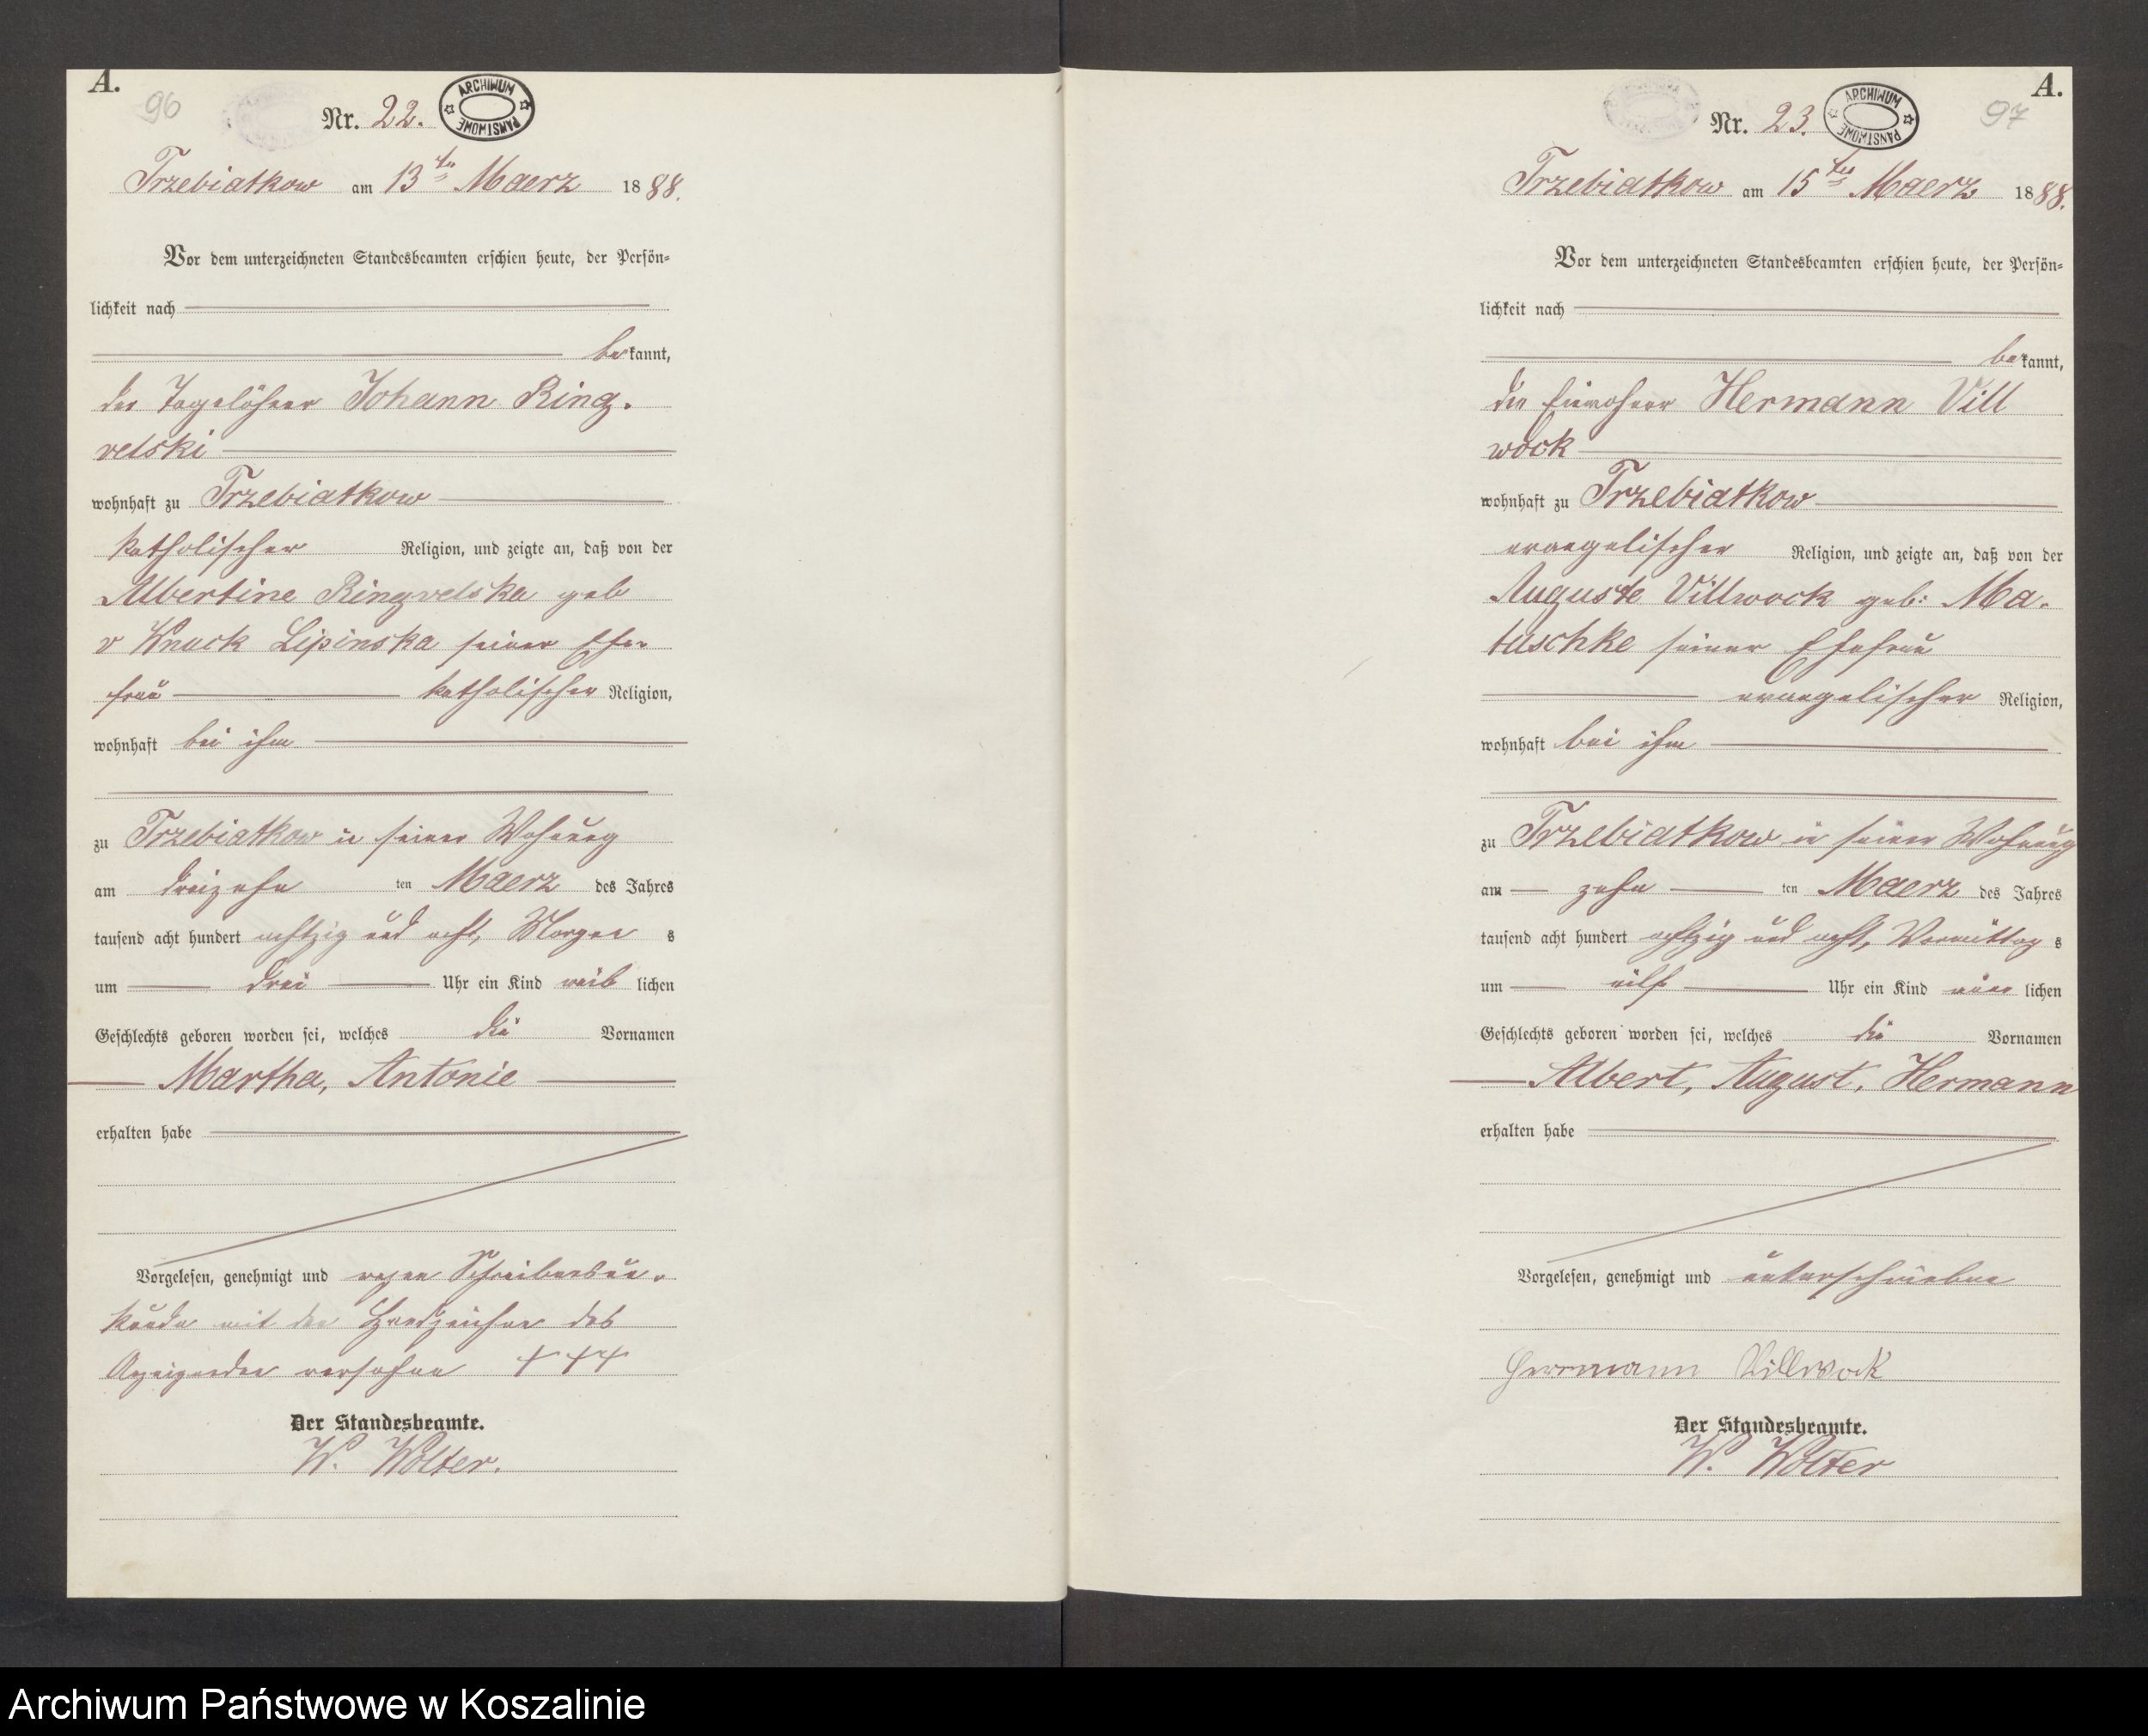 A.
96
Nr. 22.
ARCHIWUM PAŃSTWOWE
Trzebiatkow am 13ten Maerz 1888.
Vor dem unterzeichneten Standesbeamten erschien heute, der Persön-
lichkeit nach
bekannt,
der Tagelöhner Johann Ring-
velski
wohnhaft zu Trzebiatkow
katholischer Religion, und zeigte an, daß von der
Albertine Ringvelska geb
v Wnuck Lipinska seiner Ehe-
frau katholischer Religion,
wohnhaft bei ihm
zu Trzebiatkow in seiner Wohnung
am dreizehn ten Maerz des Jahres
tausend acht hundert achtzig und acht, Morgen s
um drei Uhr ein Kind weib lichen
Geschlechts geboren worden sei, welches die Vornamen
Martha, Antonie
erhalten habe
Vorgelesen, genehmigt und wegen Schreibensun-
kunde mit den Handzeichen des
Anzeigenden versehen +++
Der Standesbeamte.
W. Wolter.
A.
97
Nr. 23.
ARCHIWUM PAŃSTWOWE
Trzebiatkow am 15ten Maerz 1888.
Vor dem unterzeichneten Standesbeamten erschien heute, der Persön-
lichkeit nach
bekannt,
der Einwohner Hermann Vill
wock
wohnhaft zu Trzebiatkow
evangelischer Religion, und zeigte an, daß von der
Auguste Villwock geb: Ma-
tuschke seiner Ehefrau
evangelischer Religion,
wohnhaft bei ihm
zu Trzebiatkow in seiner Wohnung
am zehn ten Maerz des Jahres
tausend acht hundert achtzig und acht, Vormittag s
um eilf Uhr ein Kind män lichen
Geschlechts geboren worden sei, welches die Vornamen
Albert, August, Hermann
erhalten habe
Vorgelesen, genehmigt und unterschrieben
Herrmann Villwock
Der Standesbeamte.
W. Wolter
Archiwum Państwowe w Koszalinie